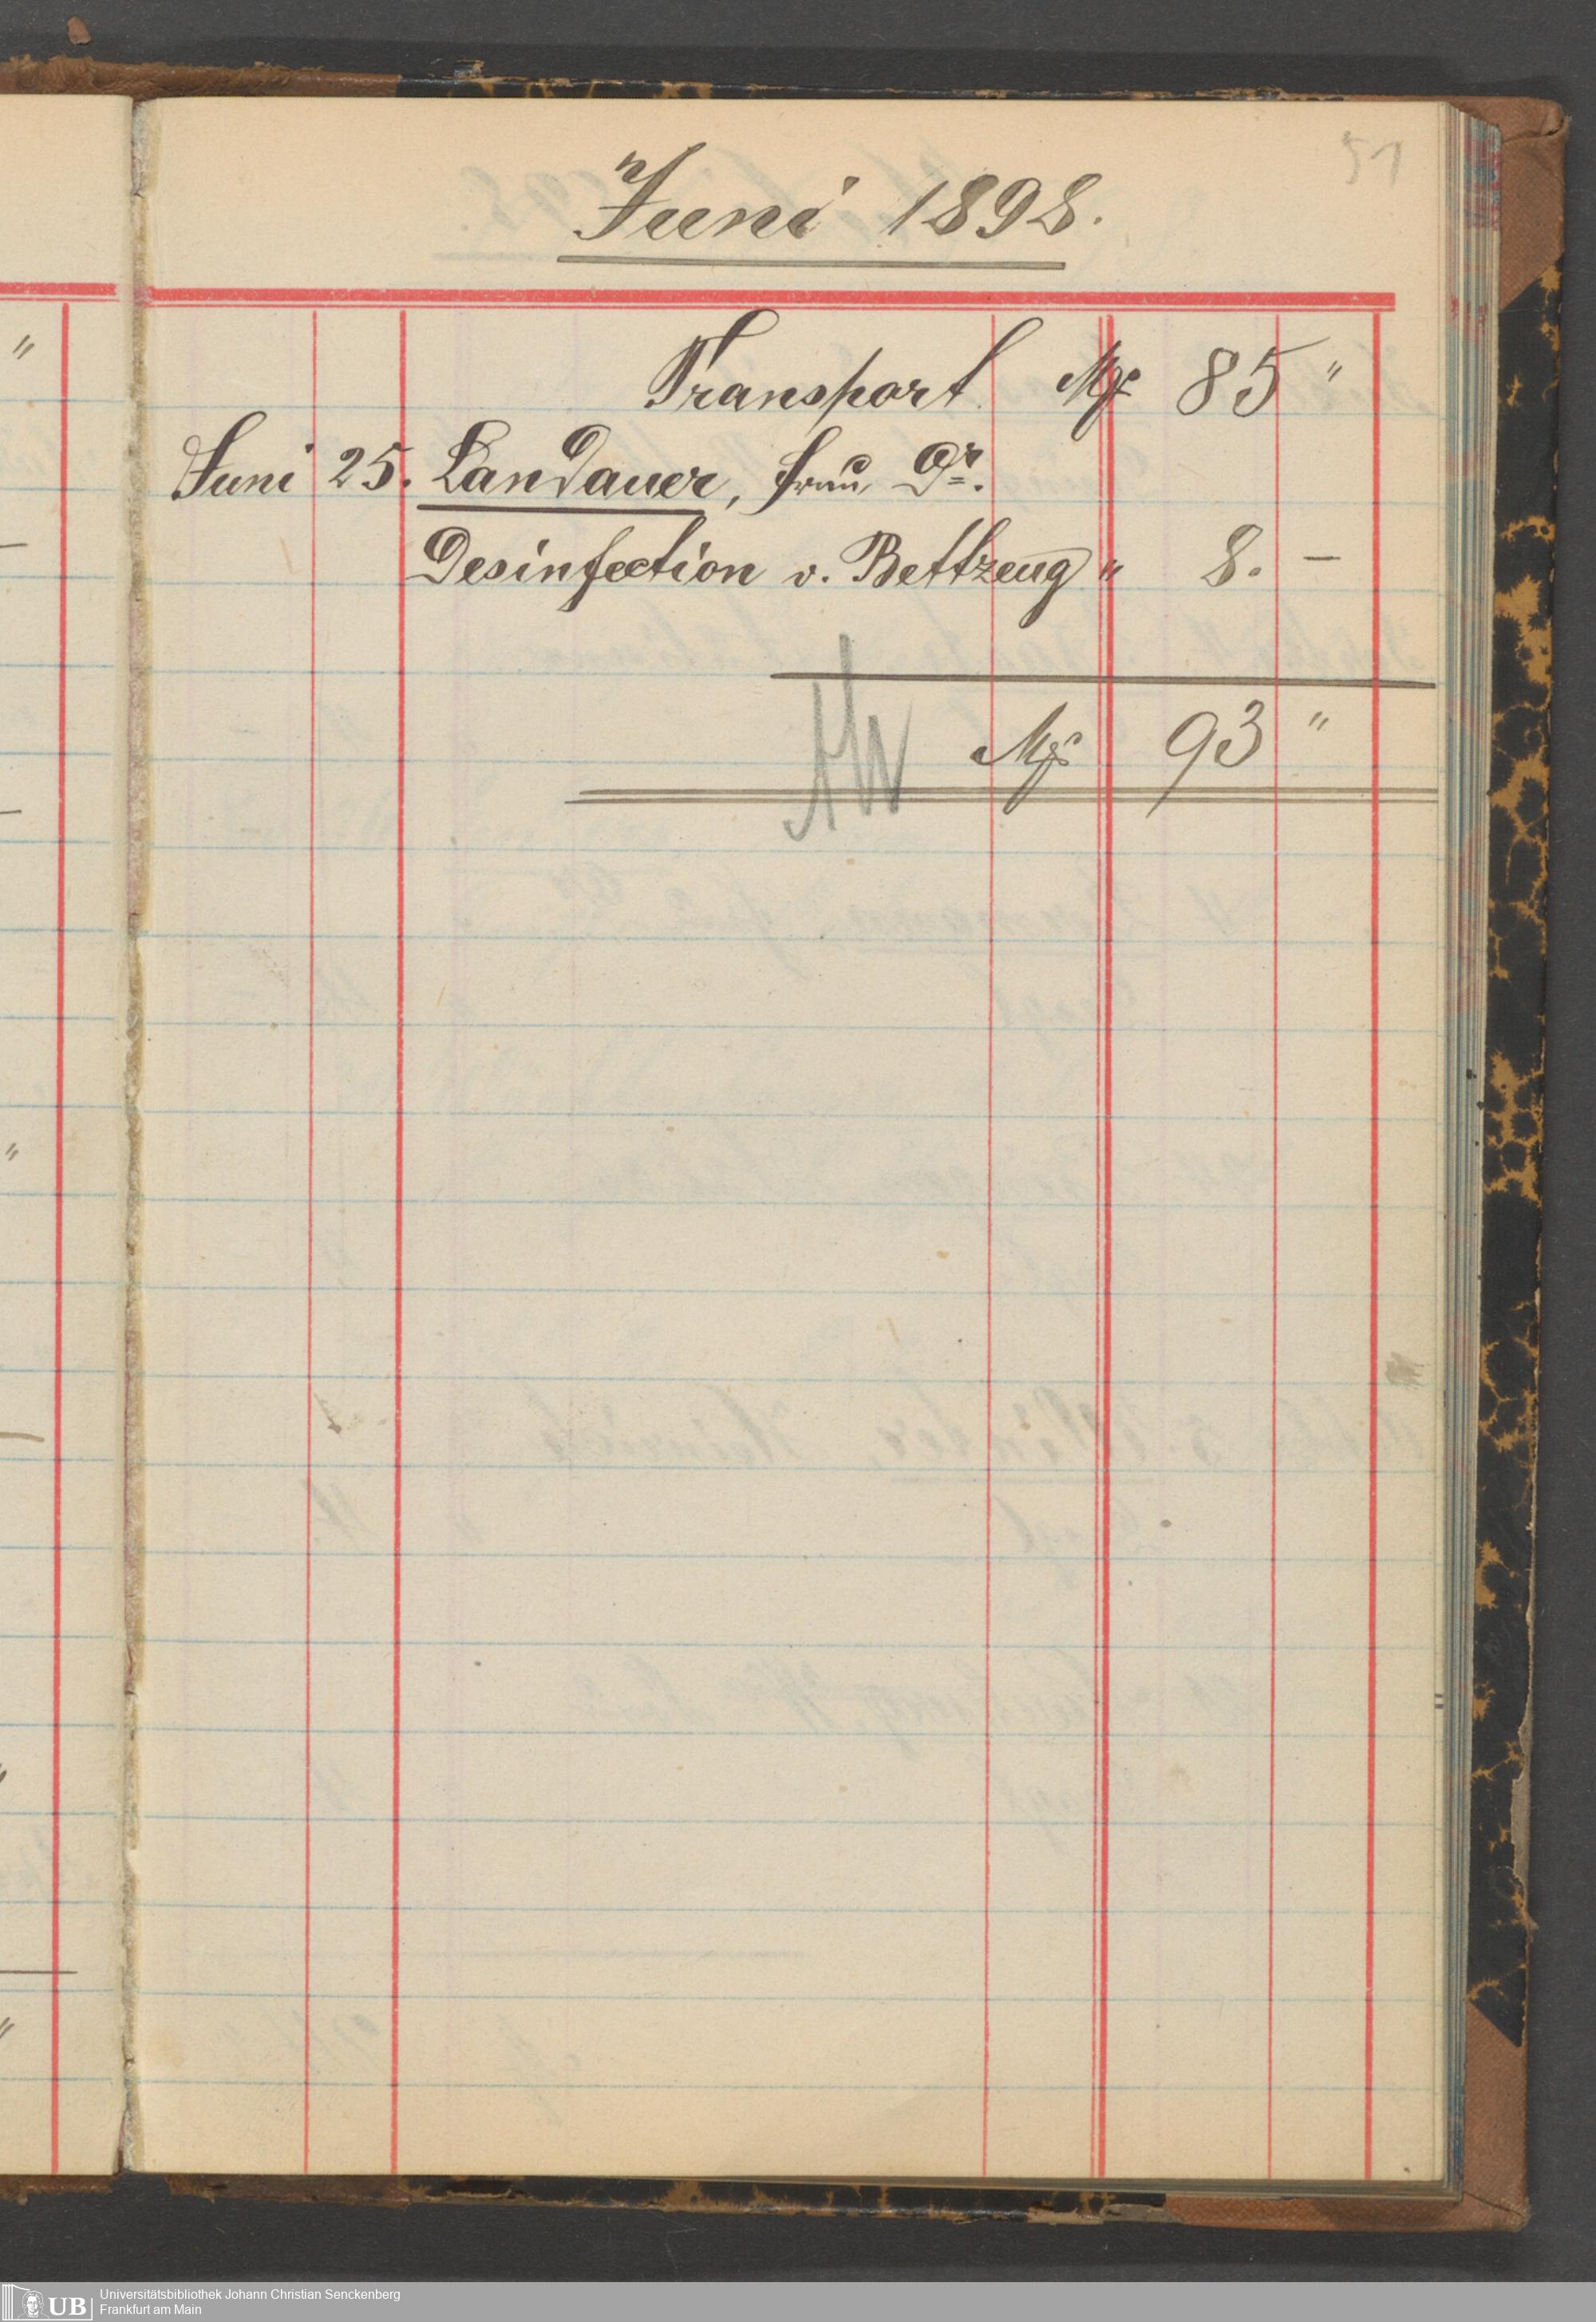 51
Juni 1898.
Transport Mk 85 "
Juni 25. Landauer, Frau Dr.
Desinfection v. Bettzeug " 8. —
Mk 93 "
UB Universitätsbibliothek Johann Christian Senckenberg
Frankfurt am Main